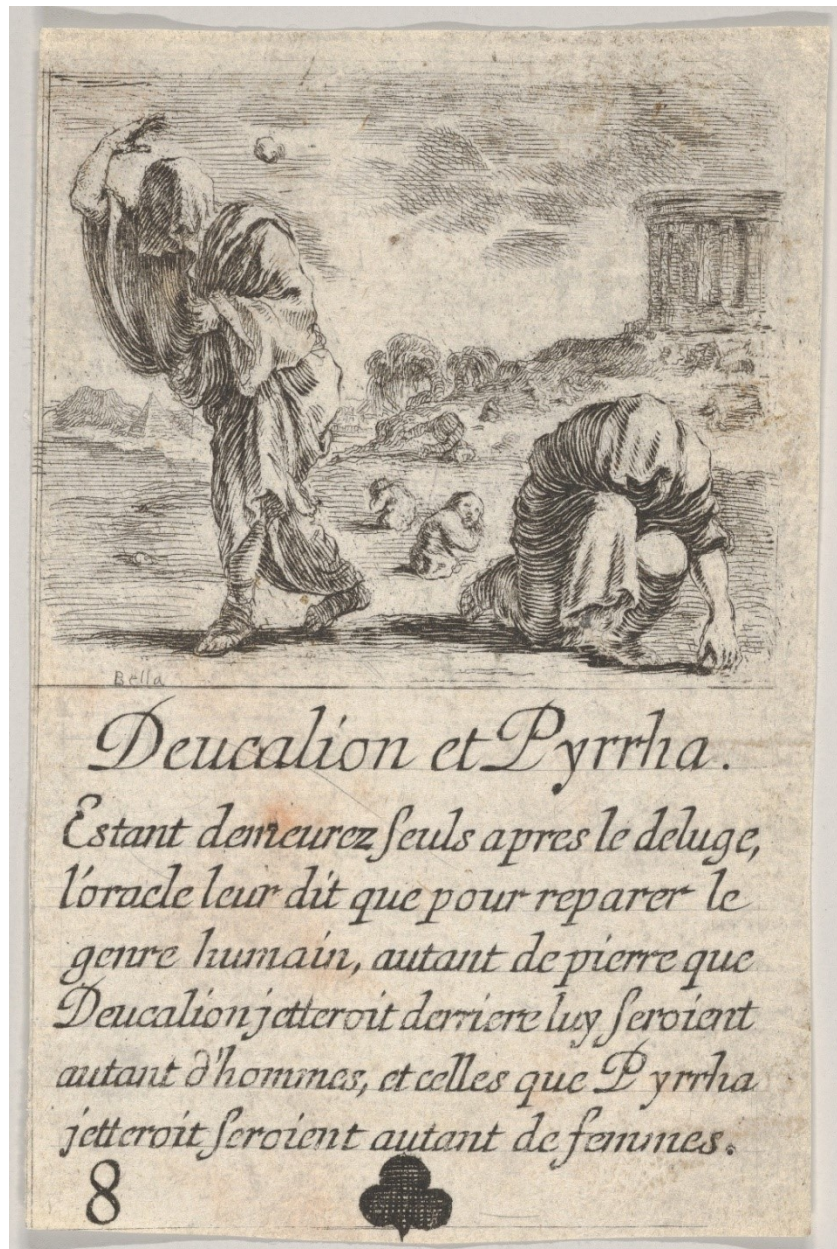 Bella
Deucalion et Pyrrha.
Estant demeurez ſeuls apres le deluge,
l'oracle leur dit que pour reparer le
genre humain, autant de pierre que
Deucalion jetteroit derriere luy ſeroient
autant d'hommes, et celles que Pyrrha
jetteroit ſeroient autant de femmes.
8